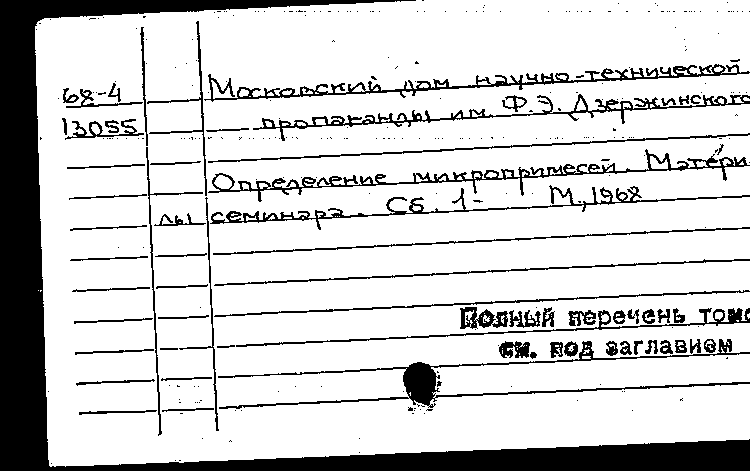 68-4 Московский дом научно-технической
13055 пропаганды им. Ф.Э. Дзержинского
Определение микропримесей. Матери-
лы семинара. Сб. 1- М., 1968
Полный перечень томо
см. под заглавием